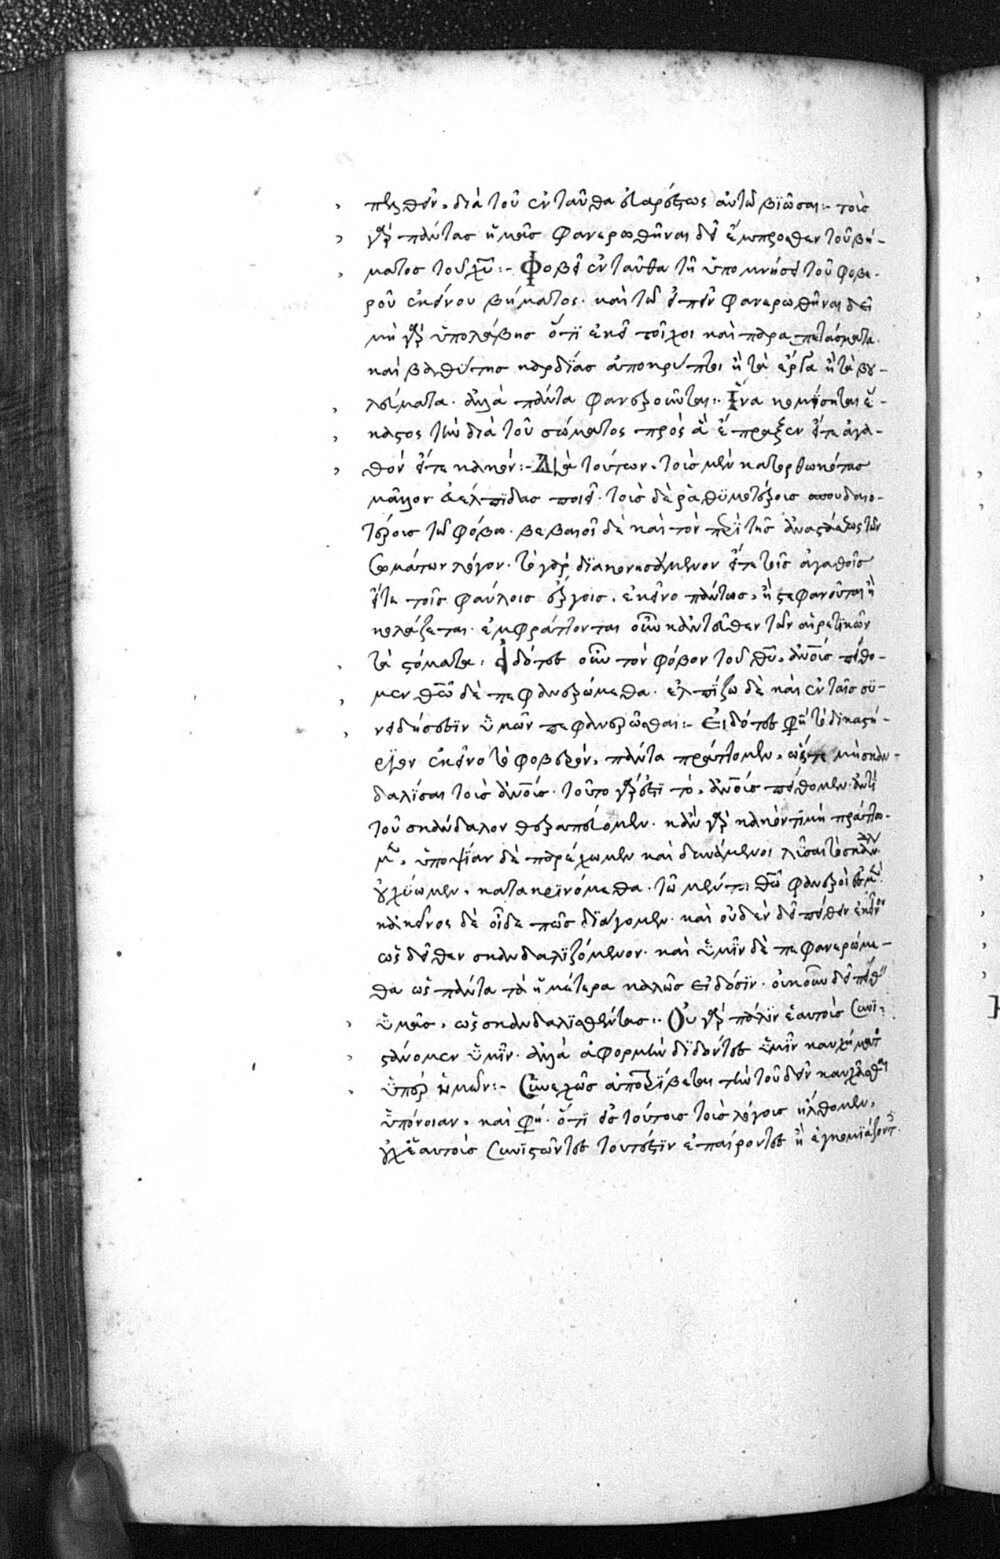 πελθεῖν, διὰ τοῦ ἐνταῦθα εὐαρέστως αὐτῶ βιῶσαι :- τοὺς
γὰρ πάντας ἡμᾶς φανερωθῆναι δεῖ ἔμπροσθεν τοῦ βή-
ματος τοῦ χυ :- Φοβεῖ ἐνταῦθα τῆ ὑπομνήσει τοῦ φοβε-
ροῦ ἐκείνου βήματος. καὶ τῶ εἰπεῖν φανερωθῆναι δεῖ
μὴ γὰρ ὑπολάβης ὅτι ἐκεῖ τοῖχοι καὶ παραπετάσματα.
καὶ βαθύτης καρδίας ἀποκρύπτει ἢ τὰ ἔργα ἢ τὰ βου-
λεύματα. ἀλλὰ πάντα φανεροῦνται :. Ἵνα κομίσηται ἕ-
καστος τὰ διὰ τοῦ σώματος πρὸς ἃ ἔπραξεν εἴτε ἀγα-
θὸν εἴτε κακόν :- Διὰ τούτων, τοὺς μὲν κατορθωκότας
μᾶλλον εὐέλπιδας ποιεῖ. τοὺς δὲ ῥαθυμοτέρους σπουδαιο-
τέρους τῶ φόβω. βεβαιοῖ δὲ καὶ τὸν περὶ τῆς ἀναστάσεως τῶν
σωμάτων λόγον. τὸ γὰρ διακονησάμενον εἴτε τοῖς ἀγαθοῖς
εἴτε τοῖς φαύλοις ἔργοις, ἐκεῖνο πάντως, ἢ στεφανοῦται ἢ
κολάζεται. ἐμφράττονται οὖν κἀντεῦθεν τῶν αἱρετικῶν
τὰ στόματα. Εἰδότες οὖν τὸν φόβον τοῦ θυ, ἀνους πείθο-
μεν θῶ δὲ πεφανερώμεθα. ἐλπίζω δὲ καὶ ἐν ταῖς συ-
νειδήσεσιν ὑμῶν πεφανερῶσθαι :- Εἰδότες φη τὸ δικαστή-
ριον ἐκεῖνο τὸ φοβερόν, πάντα πράττομεν, ὥστε μὴ σκαν-
δαλίσαι τοὺς ἀνους. τοῦτο γάρ ἐστι τό, ἀνους πείθομεν. ἀντὶ
τοῦ σκάνδαλον θεραπεύομεν. κἂν γὰρ κακόν τι μὴ πράττω-
μεν, ὑποψίαν δὲ παρέχωμεν καὶ δυνάμενοι λῦσαι τὸ σκάνδαλον
οὐ λύωμεν, κατακρινόμεθα. τῶ μέντοι θῶ φανεροί ἐσμεν.
κἀκεῖνος δὲ οἶδε πῶς διάγομεν. καὶ οὐδὲν δεῖ πείθειν ἐκεῖνον
ὡς δῆθεν σκανδαλιζόμενον. καὶ ὑμῖν δὲ πεφανερώμε-
θα ὡς πάντα τὰ ἡμέτερα καλῶς εἰδόσιν. οὐκοῦν δεῖ πείθειν
ὑμᾶς, ὡς σκανδαλισθέντας :. Οὐ γὰρ πάλιν ἑαυτοὺς συνι-
στάνομεν ὑμῖν. ἀλλὰ ἀφορμὴν διδόντες ὑμῖν καυχήματος
ὑπὲρ ἡμῶν :- Συνεχῶς ἀποτρίβεται τὴν τοῦ δοκεῖν καυχᾶσθαι
ὑπόνοιαν, καὶ φη. ὅτι εἰς τούτους τοὺς λόγους ἤλθομεν,
οὐχ ἑαυτοὺς συνιστῶντες τουτέστιν ἐπαίροντες ἢ ἐγκωμιάζοντες.